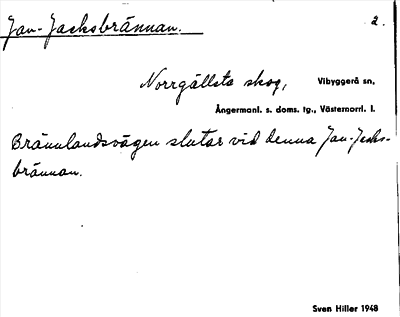 Jan-Jacksbrännan. 2.
Norrgällsta skog, Vibyggerå sn,
Ångermanl. s. doms. tg., Västernorrl. l.
Brännlandsvägen slutar vid denna Jan-Jacks-
brännan.
Sven Hiller 1948